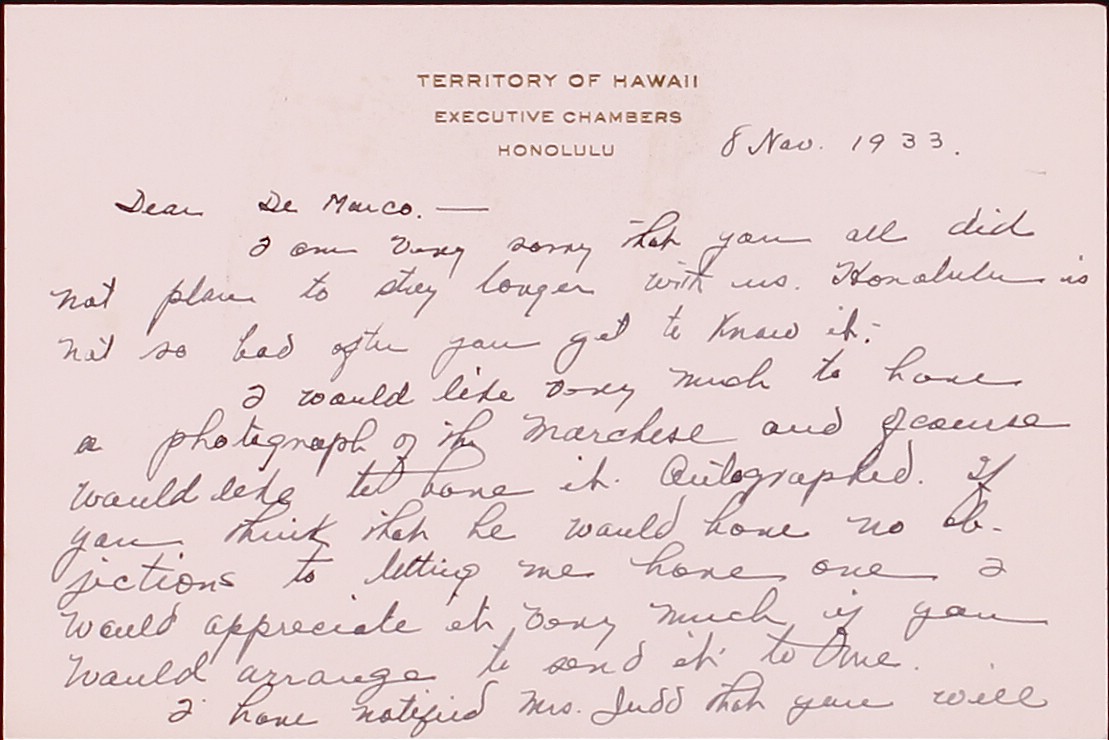 TERRITORY OF HAWAII
EXECUTIVE CHAMBERS
HONOLULU
8 Nov. 1933.
Dear De Marco. —
I am very sorry that you all did
not plan to stay longer with us. Honolulu is
not so bad after you get to know it.
I would like very much to have
a photograph of the Marchese and of course
would like to have it autographed. If
you think that he would have no ob-
jections to letting me have one I
would appreciate it very much if you
would arrange to send it to me.
I have notified Mrs. Judd that you will